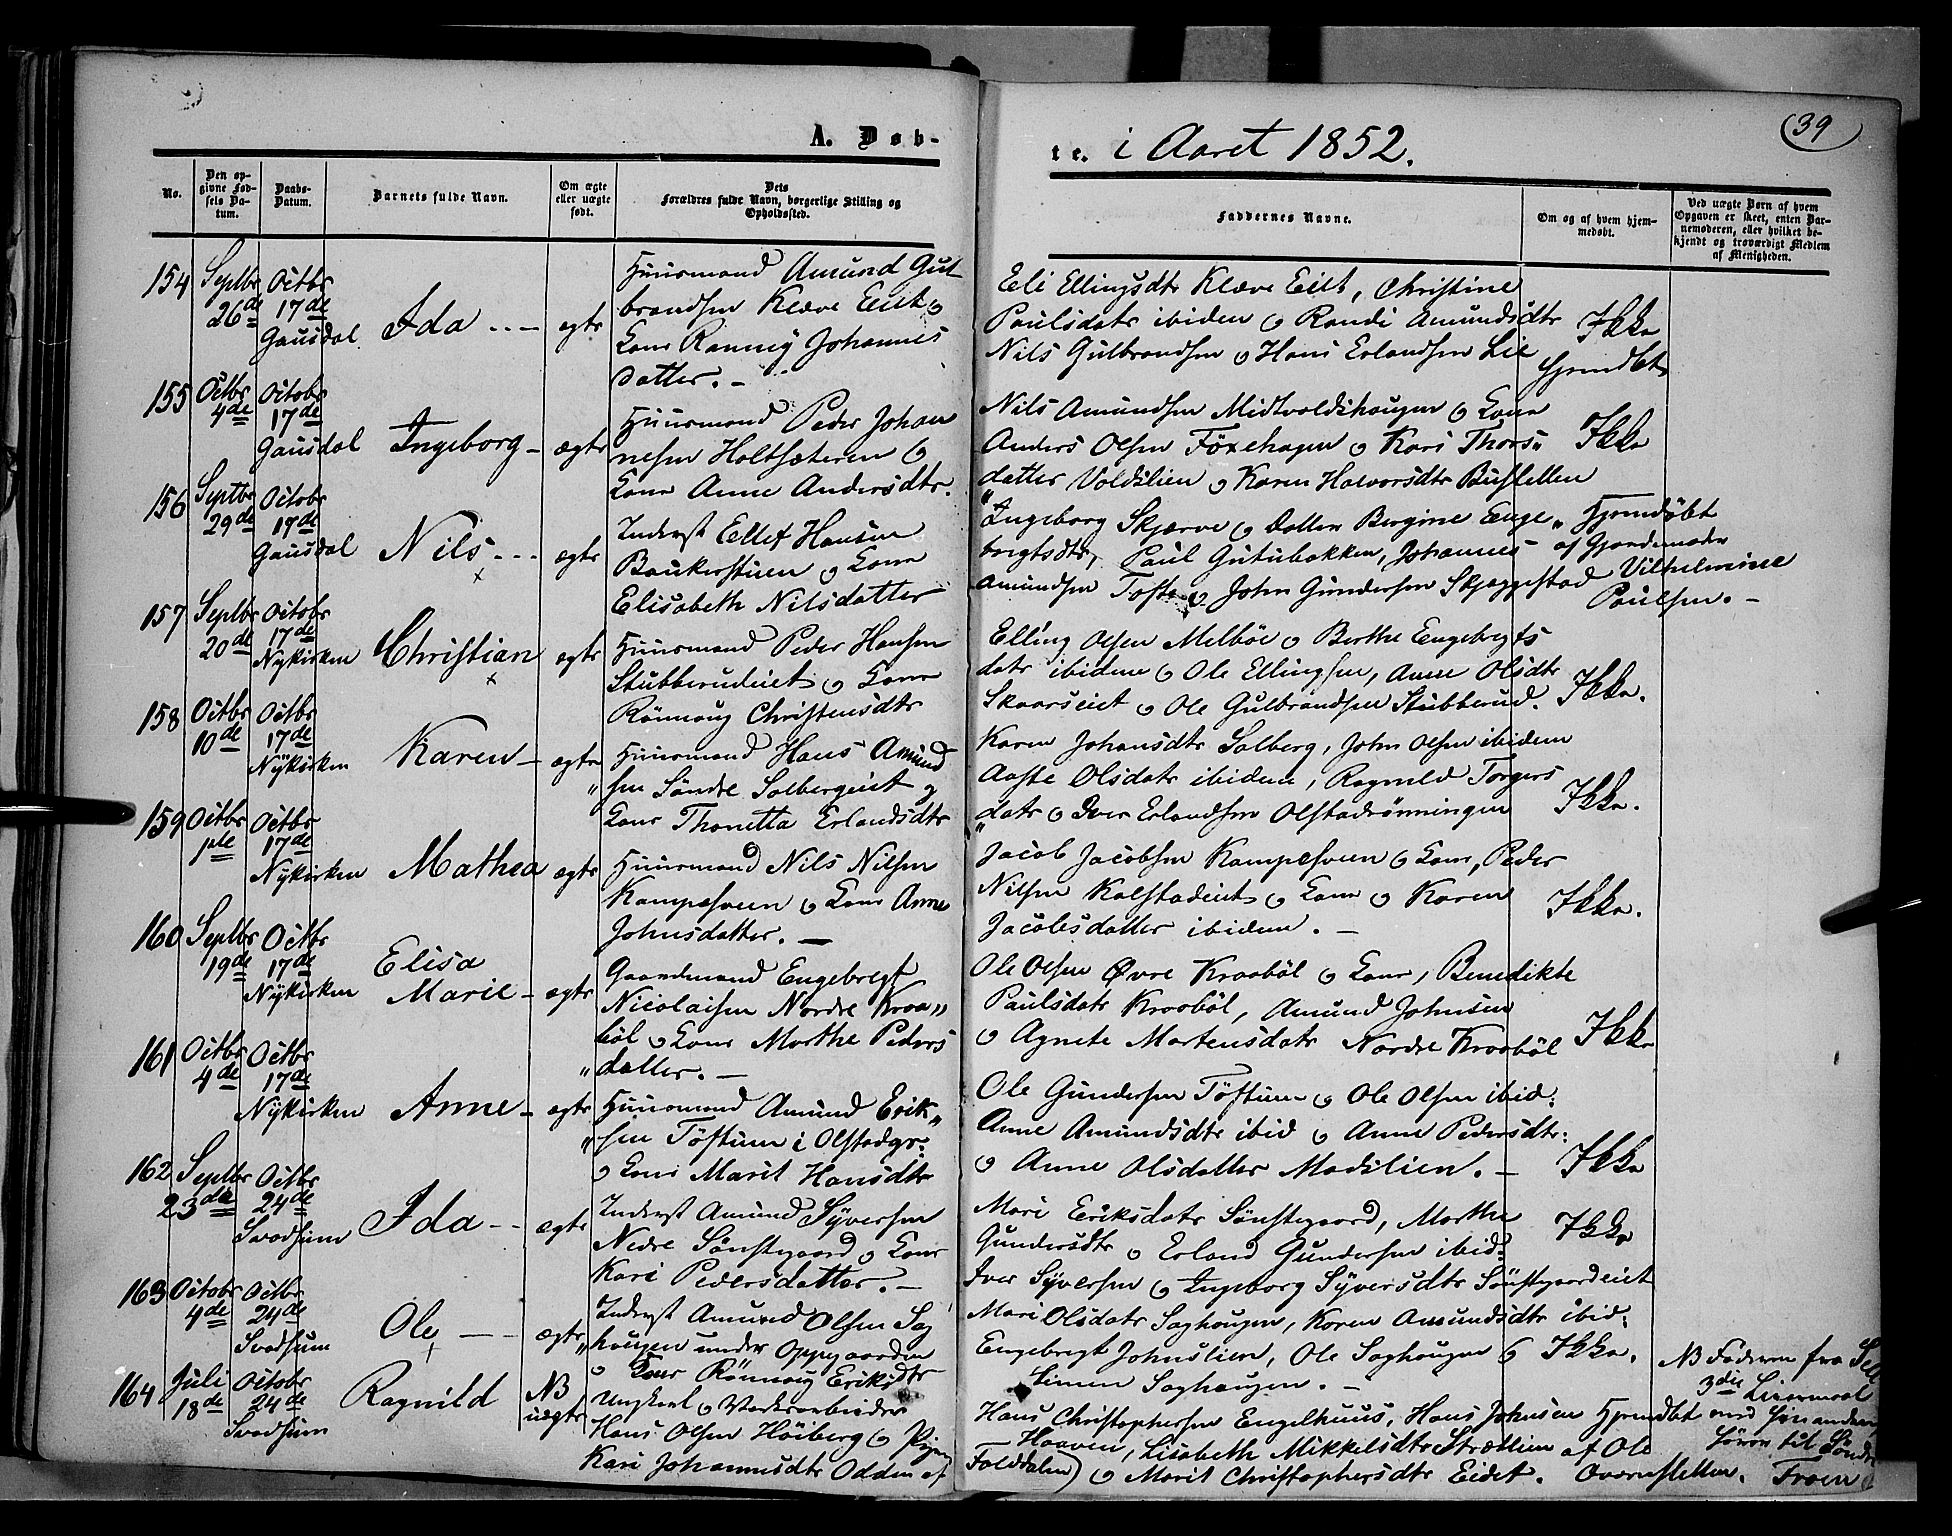 A. Døb-
te. i Aaret 1852.
39
No.
Den op-
givne Fød-
sels Da-
tum.
Daabs-
Datum.
Barnets fulde Navn.
Om ægte
eller uægte
født.
Dets
Forældres fulde Navn, borgerlige Stilling og
Opholdssted.
Faddernes Navne.
Om og af hvem hjem-
medøbt.
Ved uægte Børn af hvem
Opgaven er skeet, enten Bar-
nemoderen, eller hvilket be-
kjendt og troværdigt Medlem
af Menigheden.
154 Septbr 26de
Octbr 17de Gausdal
Ida
ægte
Huusmand Amund Gul
brandsen Klæve Eiet og
Kone Rannei Johannes
datter. -
Eli Ellingsdtr Klæve Eiet, Christine
Paulsdatr ibiden og Randi Amundsdtr
Nils Gulbrandsen og Hans Erlandsen Lie
Ikke
hjemdbt
155 Octbr 4de
Octobr 17de Gausdal
Ingeborg
ægte
Huusmand Peder Johan
nesen Holtsæteren og
Kone Anne Andersdtr.
Nils Amundsen Midtvoldshaugen og Kone
Anders Olsen Föxehagen og Kari Thors„
datter Voldslien og Karen Halvorsdtr Busletten
Ikke
156 Septbr 29de
Octobr 17de Gausdal
Nils
ægte
Inderst Ellef Hansen
Baukerstuen og Kone
Elisabeth Nilsdatter
Ingeborg Skjærve og Datter Bergine Enge„
bregtsdtr, Paul Gutubakken, Johannes
Amundsen Tofte og John Gundersen Skjæggestad
Hjemdøbt
af Gjordemoder
Vilhelmine
Paulsen. -
157 Septbr 20de
Octobr 17de Nykirken
Christian
ægte
Huusmand Peder Hansen
Stubberudeiet og Kone
Rönnoug Christensdtr
Elling Olsen Melböe og Berthe Engebregts
datr ibidem og Ole Ellingsen, Anne Olsdtr
Skaarseiet og Ole Gulbrandsen Stubberud.
Ikke.
158 Octbr 10de
Octbr 17de Nykirken
Karen
ægte
Huusmand Hans Amund
„sen Söndre Solbergeiet og
Kone Thonetta Erlandsdtr
Karen Johansdtr Solberg, John Olsen ibidem
Aaste Olsdatr ibidem, Ragnild Torgers
datr og Iver Erlandsen Olstadrönningen
Ikke.
159 Octbr 1ste
Octbr 17de Nykirken
Mathea
ægte
Huusmand Nils Nilsen
Kampesveen og Kone Anne
Johnsdatter. -
Jacob Jacobsen Kampesveen og Kone, Peder
Nilsen Kalstadeiet og Kone og Karen
Jacobsdatter ibidem. -
Ikke.
160 Septbr 19de
Octbr 17de Nykirken
Elisa
Marie
ægte
Gaardmand Engebregt
Nicolaisen Nordre Kraa„
böl og Kone Marthe Peders
„datter. -
Ole Olsen Øvre Kraaböl og Kone, Benedikte
Paulsdatr Kraaböl, Amund Johnsen
og Agnete Mortensdatr Nordre Kraaböl
Ikke
161 Octbr 4de
Octbr 17de Nykirken
Anne
ægte
Huusmand Amund Erik„
„sen Töftum i Olstadgr:
og Kone Marit Hansdtr
Ole Gundersen Töftum og Ole Olsen ibid:
Anne Amundsdtr ibid og Anne Pedersdtr:
og Anne Olsdatter Moeslien. -
Ikke
162 Septbr 23die
Octbr 24de Svadsum
Ida
ægte
Inderst Amund Syversen
Nedre Sönstegaard og Kone
Kari Pedersdatter. -
Mari Eriksdatr Sönstegaard, Marthe
Gundersdtr og Erland Gundersen ibid:
Iver Syversen og Ingeborg Syversdtr Sönstegaardeiet
Ikke
163 Octobr 4de
Octbr 24de Svadsum
Ole
ægte
Inderst Amund Olsen Sag
„haugen under Oppegaarden
og Kone Rönnaug Eriksdtr
Mari Olsdatr Saghaugen, Karen Amundsdtr ibid:
Engebregt Johnslien, Ole Saghaugen og
Simen Saghaugen. -
Ikke.
164 Juli 18de
Octobr 24de Svadsum
Ragnild
NB
uægte
Ungkarl og Værksarbeider
Hans Olsen Höiberg og Pigen
Kari Johannesdtr Odden af
Hans Christophersen Engelhuus, Hans Johnsen
Haaven, Lisabeth Mikkelsdtr Strætlien
Folddalen) og Marit Christophersdtr Eidet.
Hjemdbt
af Ole
Aavensletten.
NB Faderen fra Sell
3die Leiermaal
med sin anden
Söndre
Froen